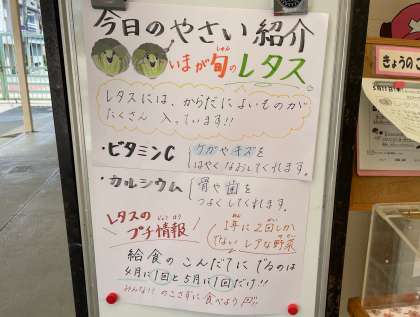 今日のやさい紹介
いまが旬のレタス
しゅん
レタスには、からだによいものが
たくさん 入っています!!
・ビタミンC
ケガやキズを
はやくなおしてくれます。
・カルシウム
骨や歯を
つよくしてくれます。
レタスの
プチ情報
じょうほう
1年に2回しか
でない レアな野菜
給食のこんだてにでるのは
4月に1回と5月に1回だけ!!
みんな!! のこさずに食べよう
きょうのこ